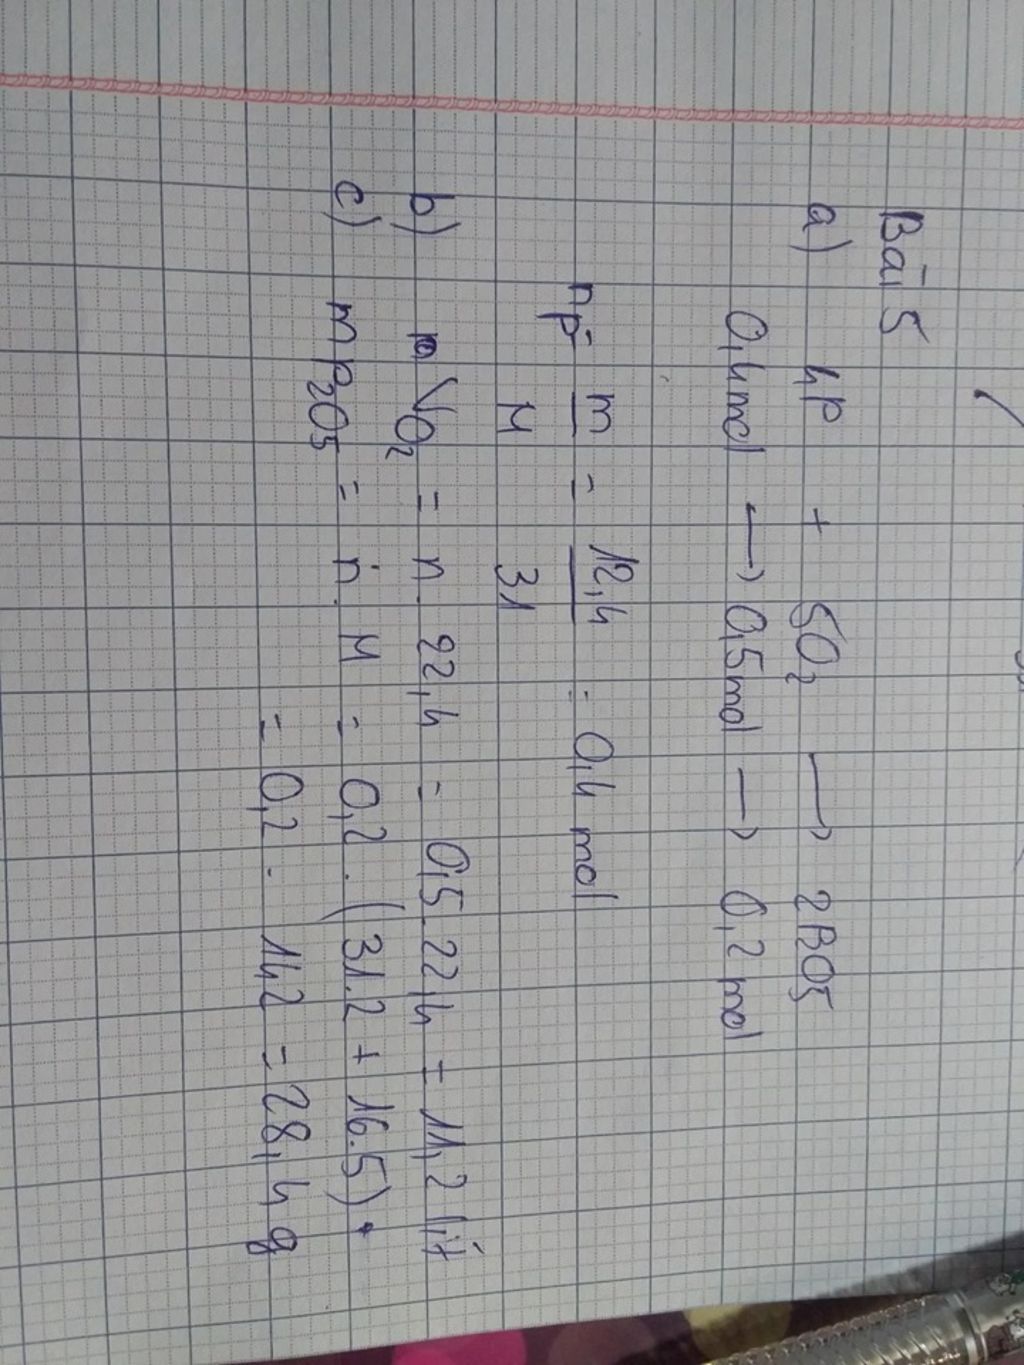 Bài 5
a) 4P + 5O2 → 2P2O5
0,4mol → 0,5mol → 0,2 mol
nP = m/M = 12,4/31 = 0,4 mol
b) VO2 = n. 22,4 = 0,5.22,4 = 11,2 lít
c) mP2O5 = n. M = 0,2.(31.2 + 16.5)
= 0,2. 142 = 28,4 g